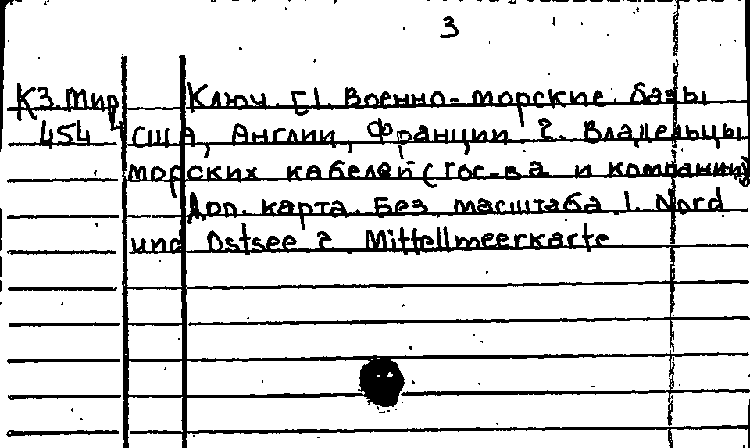 3
К3.Мир Ключ. [1. Военно-морские базы
454 США, Англии, Франции 2. Владельцы
морских кабелей (гос-ва и компании)
Доп. карта. Без масштаба 1. Nord
und Ostsee 2 Mittellmeerkarte